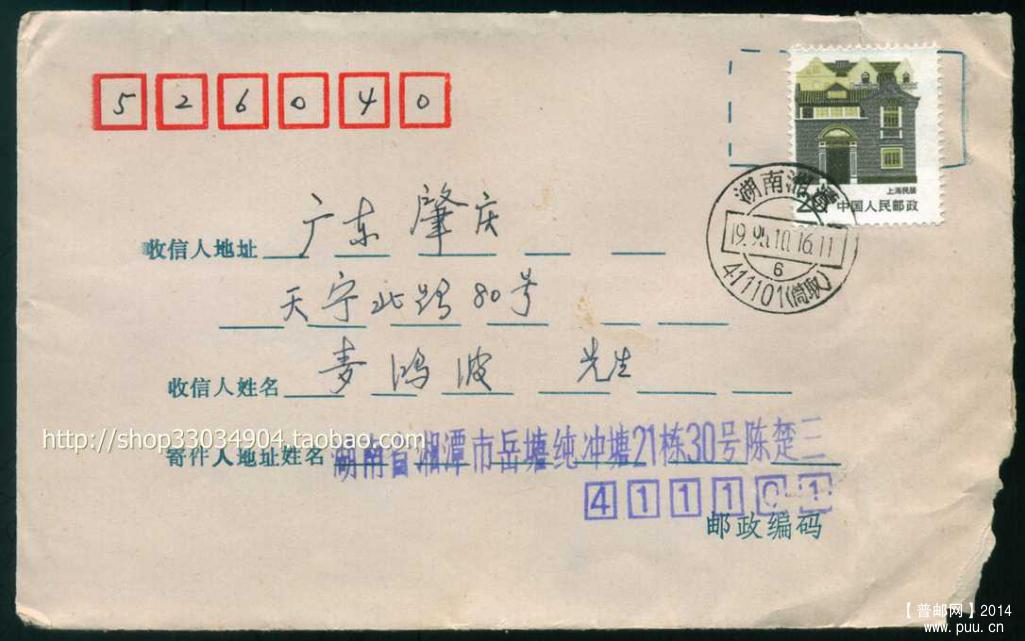 526040
上海民居
20 中国人民邮政
湖南湘潭
19.95.10.16.11
6
411101(筒取)
收信人地址 广东 肇庆
天宁北路80号
收信人姓名 麦鸿波 先生
http://shop33034904.taobao.com
寄件人地址姓名 湖南省湘潭市岳塘纯冲塘21栋30号陈楚三
411101
邮政编码
【普邮网】2014
www.puu.cn